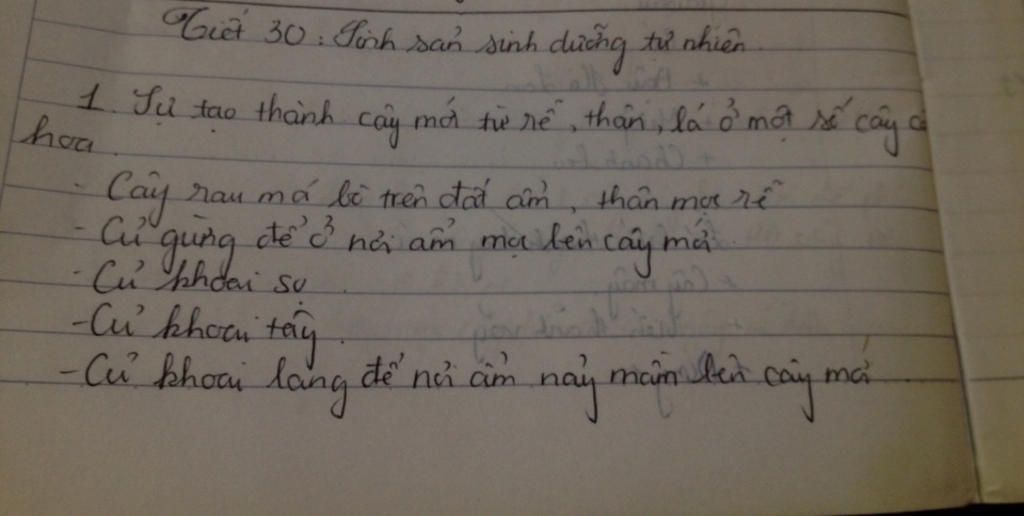 Tiết 30: Sinh sản sinh dưỡng tự nhiên
1. Sự tạo thành cây mới từ rễ, thân, lá ở một số cây có
hoa.
- Cây rau má bò trên đất ẩm, thân mọc rễ
- Củ gừng để ở nơi ẩm mọc lên cây mới.
- Củ khoai sọ.
- Củ khoai tây.
- Củ khoai lang để nơi ẩm nảy mầm lên cây mới